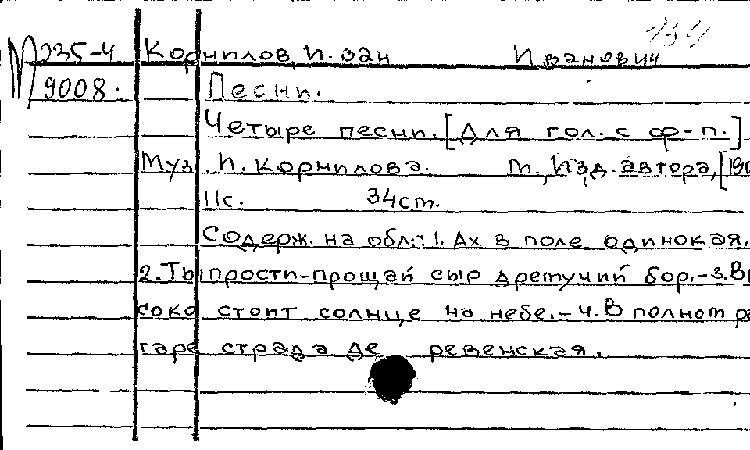 М 235-4 Корнилов, Иван Иванович
9008. Песни.
Четыре песни. [Для гол. с ф-п.]
Муз. И. Корнилова. М., Изд. автора, [190
11с. 34см.
Содерж. на обл.: 1. Ах в поле одинокая.
2. Ты прости-прощай сыр дремучий бор.-3. Вы
соко стоит солнце на небе.-4. В полном ра
гаре страда де ревенская.